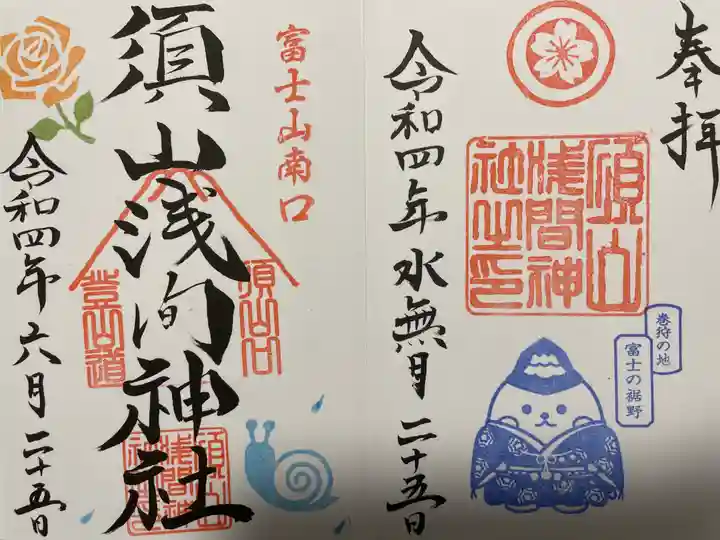 奉拝
須山浅間神社之印
令和四年水無月二十五日
巻狩の地
富士の裾野
富士山南口
須山口
登山道
須山浅間神社
須山浅間神社
令和四年六月二十五日